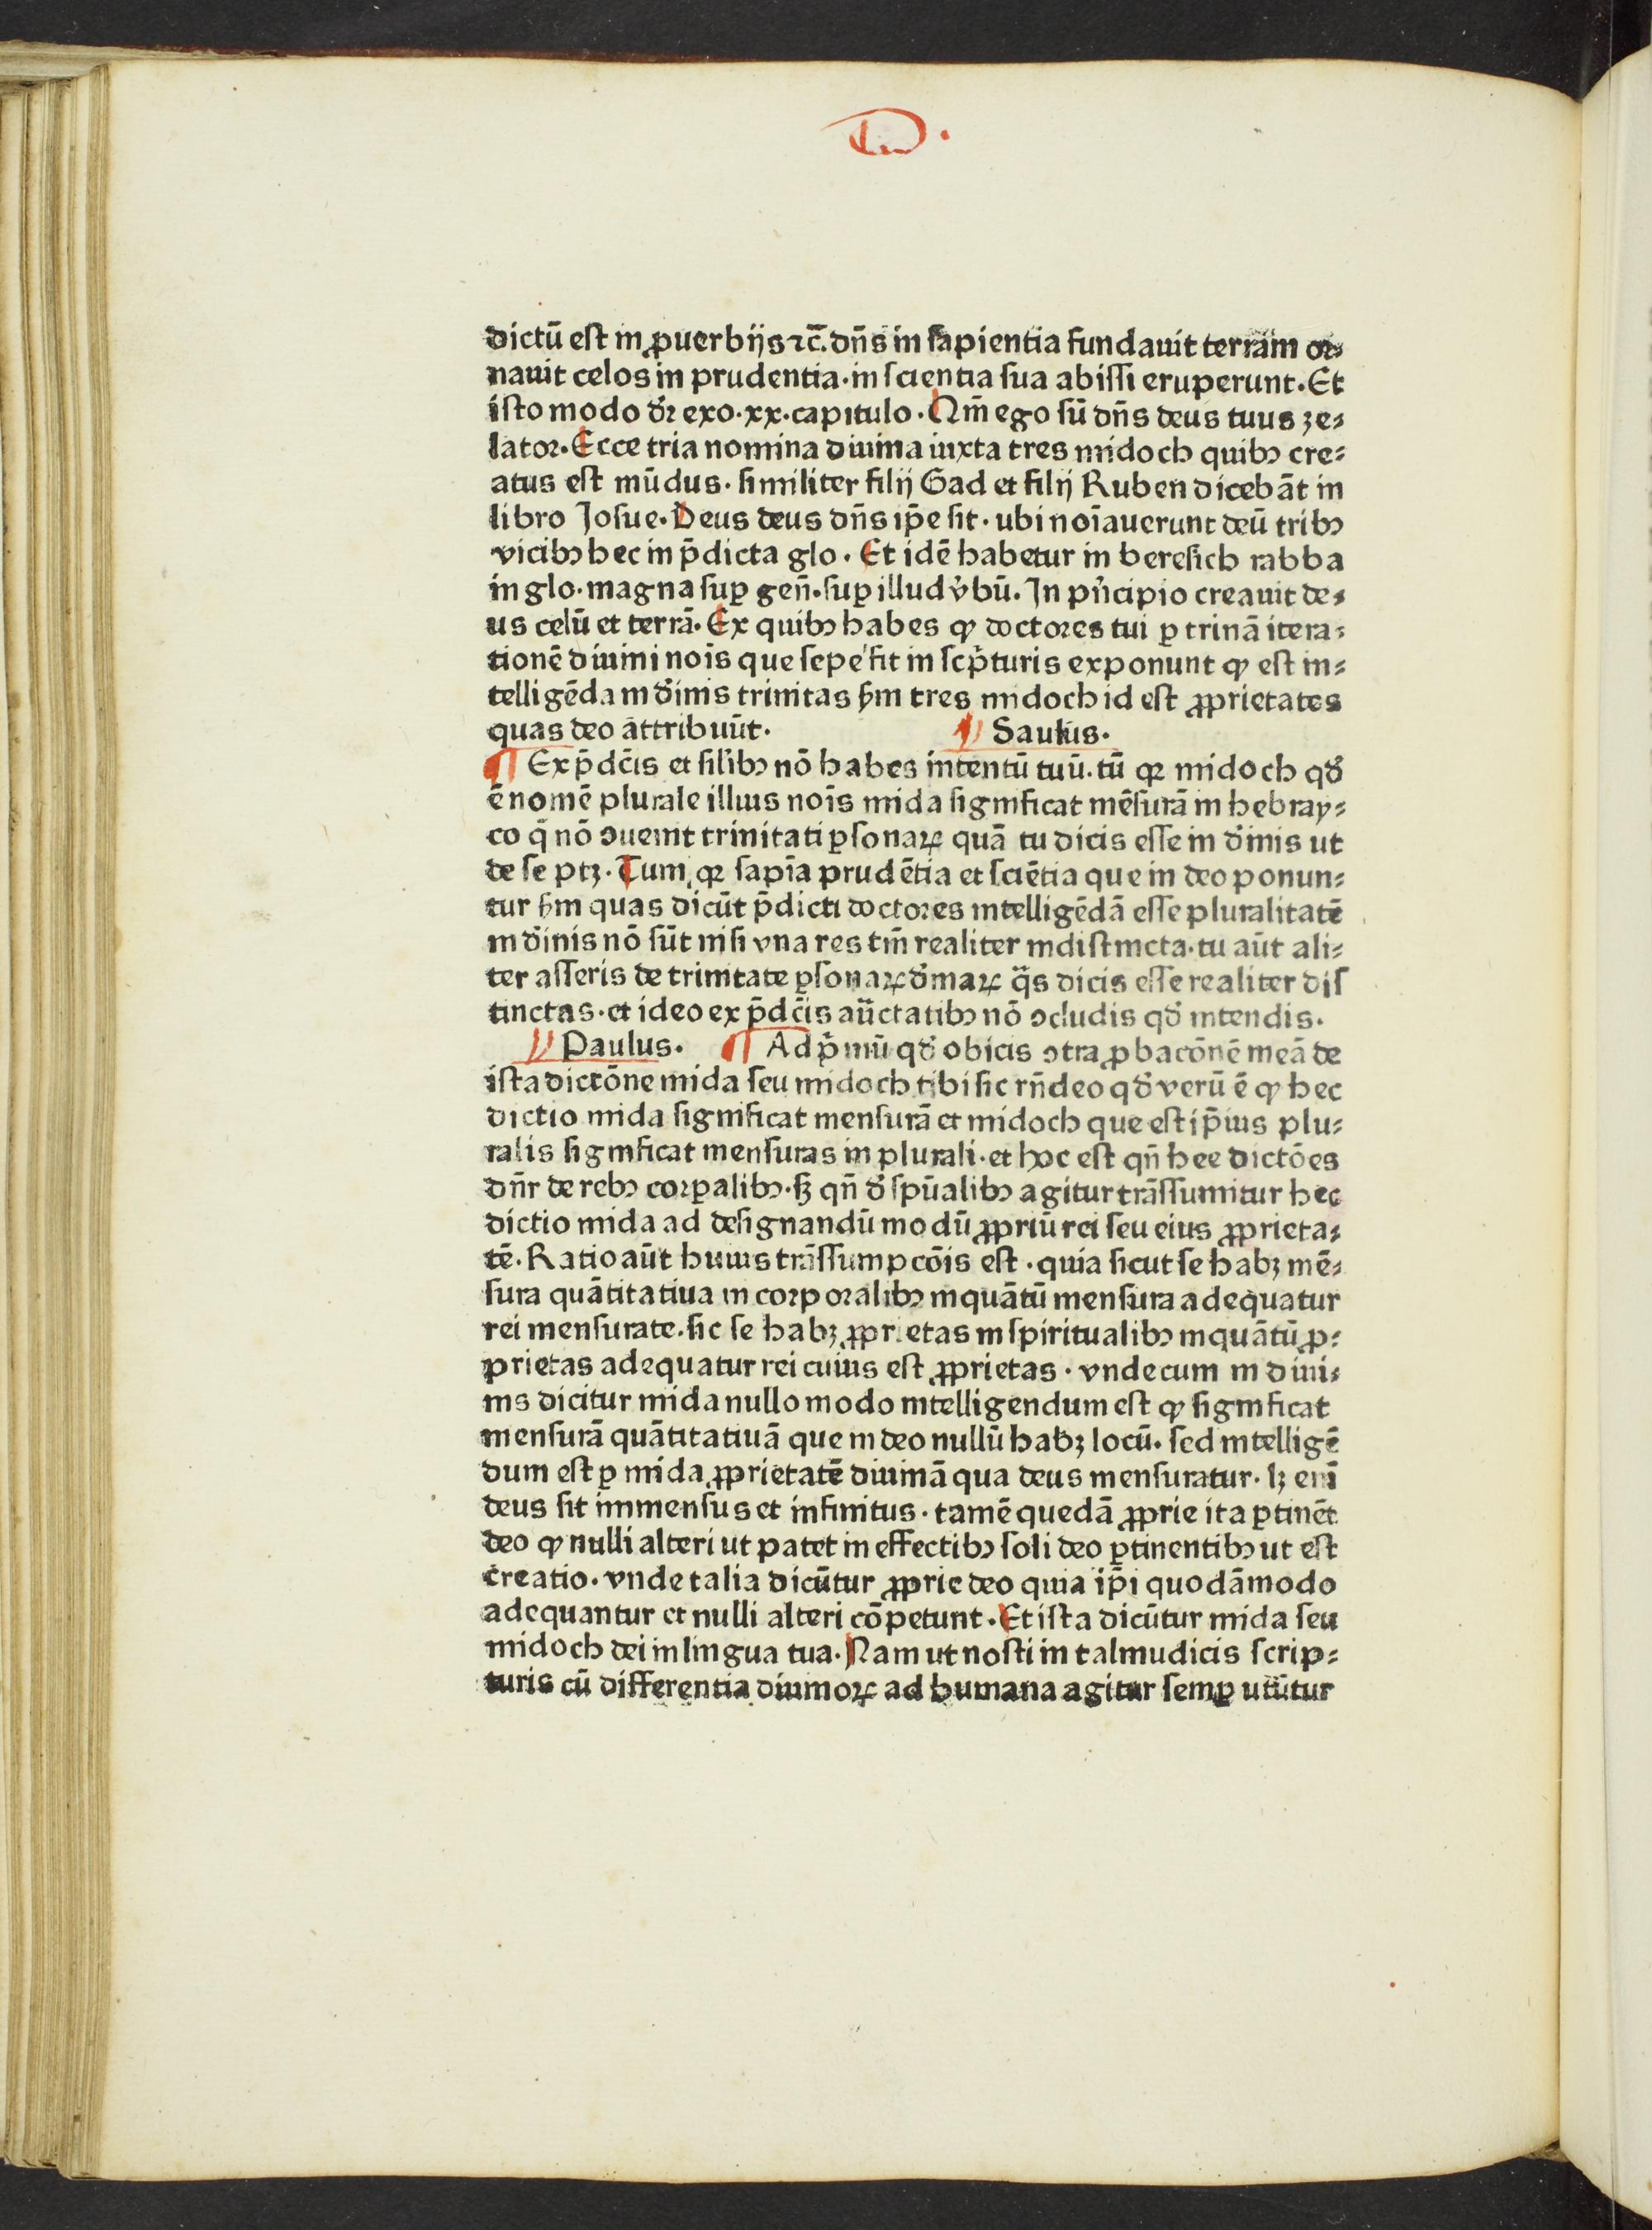 D.
dictū est in ꝓuerbijs ⁊c̄. dn̄s in sapientia fundauit terram or⸗
nauit celos in prudentia. in scientia sua abissi eruperunt. Et
isto modo dr̄ exo. xx. capitulo. Qm̄ ego sū dn̄s deus tuus ze⸗
lator. Ecce tria nomina diuina iuxta tres midoch quibꝰ cre⸗
atus est mūdus. similiter filij Gad et filij Ruben dicebāt in
libro Josue. Deus deus dn̄s ip̄e sit. ubi noīauerunt deū tribꝰ
vicibꝰ hec in p̄dicta glo. Et idē habetur in beresich rabba
in glo. magna suꝑ gen̄. suꝑ illud v̓bū. In pn̓cipio creauit de⸗
us celū et terrā. Ex quibꝰ habes ꝙ doctores tui ꝑ trinā itera⸗
tionē diuini nois̄ que sepe fit in scp̓turis exponunt ꝙ est in⸗
telligēda in diuīnis trinitas scd̄m tres midoch id est ꝓprietates
quas deo attribuūt. Saulus.
¶ Ex p̄dc̄is et sil̓ibꝰ nō habes intentū tuū. tū qꝛ midoch qd̓
ē nomē plurale illius nois̄ mida significat mēsurā in hebray⸗
co q̄ nō ꝯuenit trinitati ꝑsonaꝝ quā tu dicis esse in diuīnis ut
de se ptꝫ. Tum qꝛ sapīa prudētia et sciētia que in deo ponun⸗
tur scd̄m quas dicūt p̄dicti doctores intelligēdā esse pluralitatē
in diuīnis nō sūt nisi vna res tm̄ realiter indistincta. tu aūt ali⸗
ter asseris de trinitate ꝑsonaꝝ diuīnaꝝ q̄s dicis esse realiter dis
tinctas. et ideo ex p̄dc̄is auc̄tatibꝰ nō ꝯcludis qd̓ intendis.
Paulus. ¶ Ad p̓mū qd̓ obicis ꝯtra ꝓbacōnē meā de
ista dictōne mida seu midoch tibi sic rn̄deo qd̓ verū ē ꝙ hec
dictio mida significat mensurā et midoch que est ip̄ius plu⸗
ralis significat mensuras in plurali. et hoc est qn̄ hee dictōes
dn̄r de rebꝰ corꝑalibꝰ. sꝫ qn̄ d̓ spūalibꝰ agitur trāssumitur hec
dictio mida ad designandū modū ꝓpriū rei seu eius ꝓprieta⸗
tē. Ratio aūt huius trāssumpcōis est. quia sicut se habꝫ mē⸗
sura quātitatiua in corporalibꝰ inquātū mensura adequatur
rei mensurate. sic se habꝫ ꝓprietas in spiritualibꝰ inquātū ꝓ⸗
prietas adequatur rei cuius est ꝓprietas. vnde cum in diui⸗
nis dicitur mida nullo modo intelligendum est ꝙ significat
mensurā quātitatiuā que in deo nullū habꝫ locū. sed intelligē
dum est ꝑ mida ꝓprietatē diuinā qua deus mensuratur. lꝫ eni̅
deus sit immensus et infinitus. tamē quedā ꝓprie ita ꝑtinēt
deo ꝙ nulli alteri ut patet in effectibꝰ soli deo ꝑtinentibꝰ ut est
creatio. vnde talia dicūtur ꝓprie deo quia ip̄i quodāmodo
adequantur et nulli alteri cōpetunt. Et ista dicūtur mida seu
midoch dei in lingua tua. Nam ut nosti in talmudicis scrip⸗
turis cū differentia diuinoꝝ ad humana agitur semꝑ utūtur